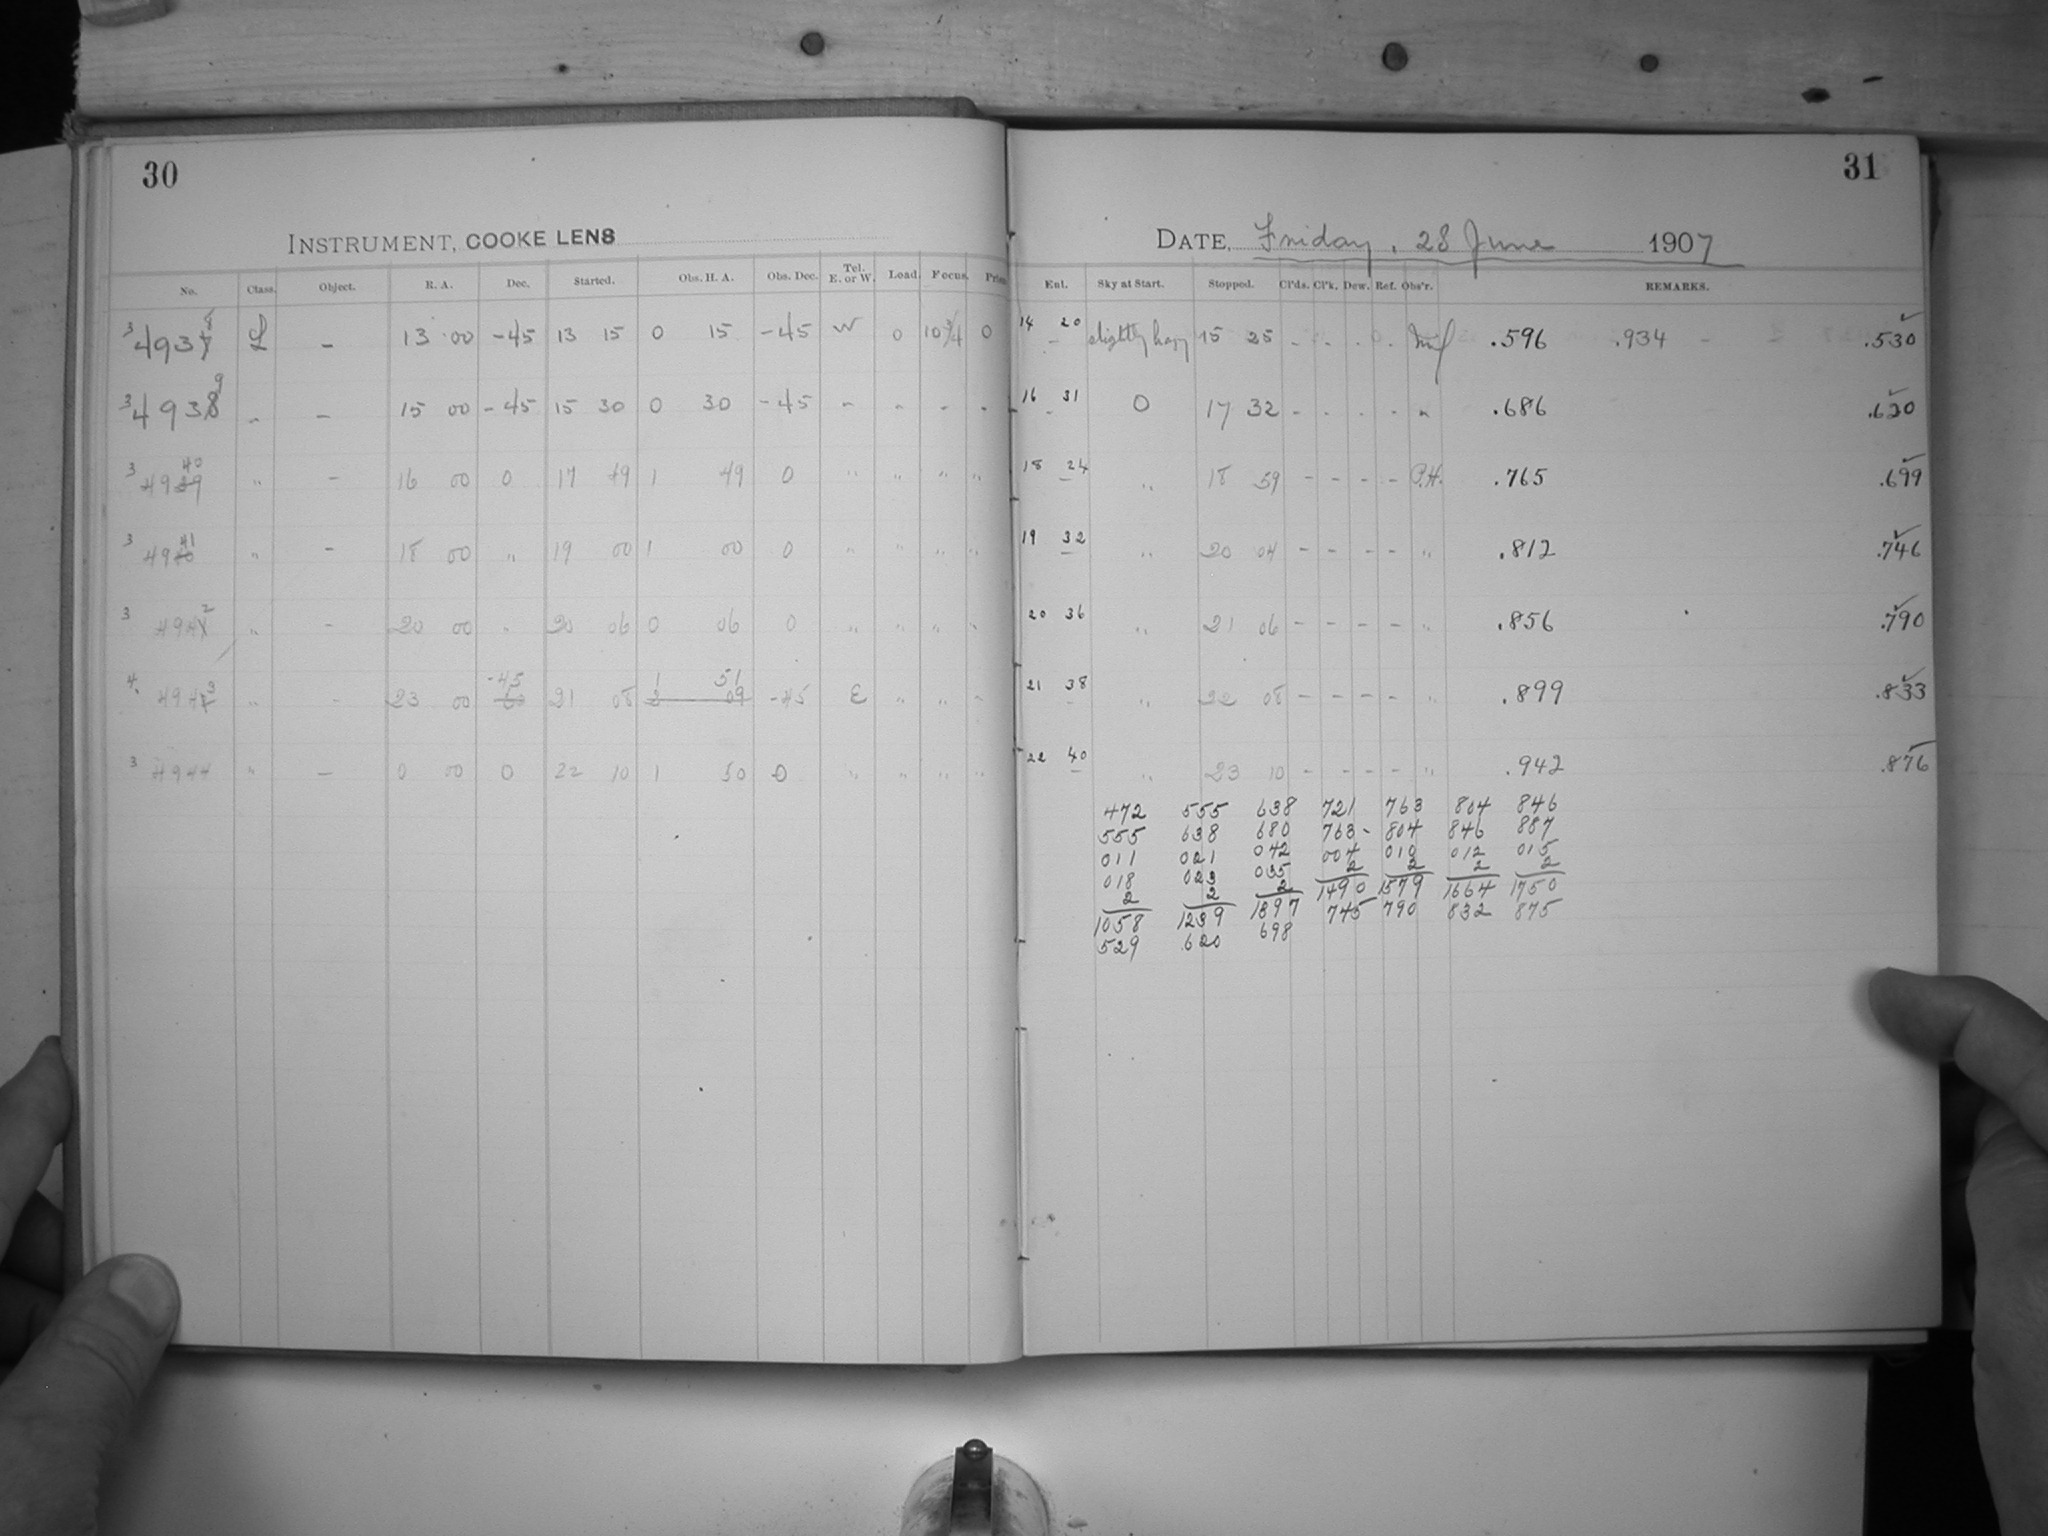 30
INSTRUMENT, COOKE LENS
No. Class. Object. R. A. Dec. Started. Obs. H. A. Obs. Dec. Tel. E. or W. Load. Focus. Prism
3 493 L – 13 00 -45 13 15 0 15 -45 W 0 10 3/4 0
3 493 " – 15 00 -45 15 30 0 30 -45 " " " "
3 4939 40 " – 16 00 0 17 49 1 49 0 " " " "
3 4940 41 " – 18 00 " 19 00 1 00 0 " " " "
3 494 2 " – 20 00 " 20 06 0 06 0 " " " "
4. 494 3 " – 23 00 -45 60 21 08 1 51 2 09 -45 E " " "
3 4944 " – 0 00 0 22 10 1 50 0 " " " "
31
DATE, Friday, 28 June 1907
Ext. Sky at Start. Stopped. Cl'ds. Cl'k. Dew. Ref. Obs'r. REMARKS.
14 20 slightly hazy 15 25 - - - - .596 .934 - .530
16 31 0 17 32 - - - - " .686 .620
18 24 " 18 59 - - - - P.H. .765 .699
19 32 " 20 04 - - - - " .812 .746
20 36 " 21 06 - - - - " .856 .790
21 38 " 22 08 - - - - " .899 .833
22 40 " 23 10 - - - - " .942 .876
472 555 638 721 763 804 846
555 638 680 763 804 846 887
011 021 042 004 010 012 015
018 023 035 2 2 2 2
2 2 2 1490 1579 1664 1750
1058 1239 1397 745 790 832 875
529 .620 698